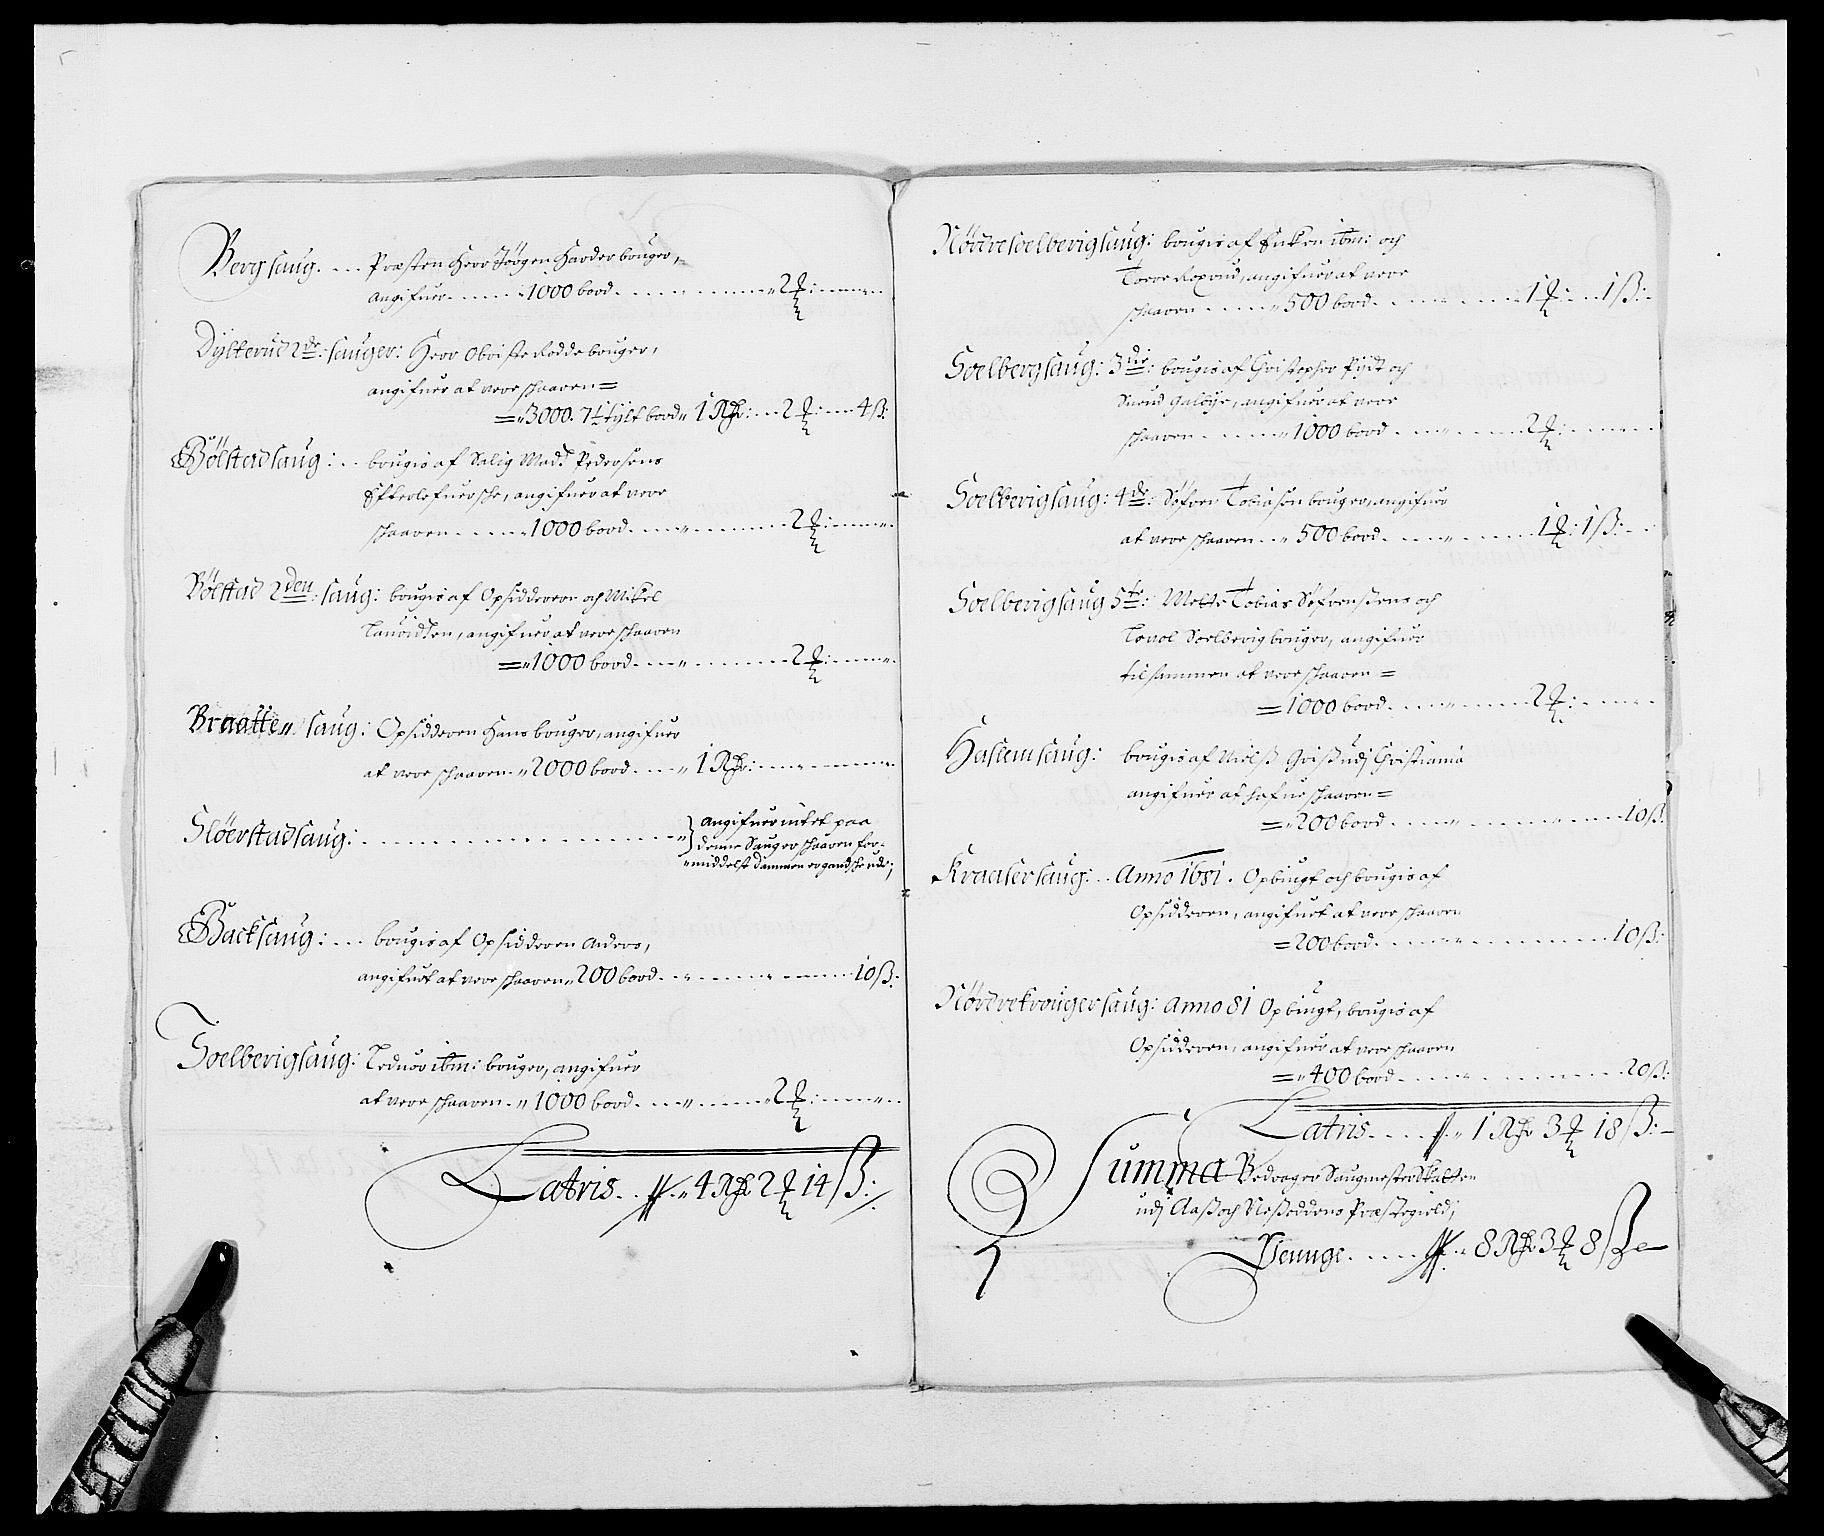 Bergsaug. ... Præsten Herr Jörgen Harder bruger,
angifuer ...... 1000 bord ............ 2 ₰:
Dÿsterud 2de: sauger: Herr Obriste Rodde bruger,
angifuer at vere schaaren =
= 3000. 7½ tÿlt bord 1 Rdr: .. 2 ₰: ... 4 ß:
Bölstadsaug: .. brugis af Salig Mads Pedersens
Efterlefuersche, angifuer at vere
schaaren ..... 1000 bord ......... 2 ₰:
Bölstad 2den: saug: brugis af Opsidderen och Mikel
Lauridsen, angifuer at vere schaaren
= 1000 bord .... 2 ₰:
Braatten saug: Opsidderen Hans bruger, angifuer
at vere schaaren 2000 bord .... 1 Rdr:
Slöerstadsaug: ............ angifuer intet paa
denne Sauger schaaren for-
middelst Dammen er gandsche øde;
Backsaug: ... brugis af Opsidderen Anders,
angifuet at vere schaaren 200 bord ........ 10 ß:
Soelberigsaug: Leduor ibm: bruger, angifuer
at vere schaaren .. 1000 bord ....... 2 ₰:
Latris ... 4 Rdr 2 ₰ 14 ß:
Nördresoelberigsaug: brugis af Enken ibm: och
Torre angifuer at vere
schaaren ..... 500 bord ........ 1 ₰: ... 1 ß:
Soelbergsaug: 3die: brugis af Christopher och
Suend angifuer at vere
schaaren ..... 1000 bord ........ 2 ₰:
Soelberigsaug: 4de: Söfren Tobiasön bruger, angifuer
at vere schaaren .. 500 bord ........ 1 ₰: 1 ß:
Soelberigsaug 5te: Mette Tobias Söfrensens och
Soelberig bruger, angifuer
tilsammen at vere schaaren =
= 1000 bord ........ 2 ₰:
Haslemsaug: brugis af Nielß udj Christiania
angifuer at hafue schaaren =
= 200 bord ........ 10 ß:
Kraasersaug: .. Anno 1681. Opbiugt och brugis af
Opsidderen, angifuet at vere schaaren
= 200 bord ........ 10 ß:
Nördrekrougersaug: Anno 81 Opbiugt, brugis af
Opsidderen, angifuer at vere schaaren
= 400 bord ........ 20 ß:
Latris .... 1 Rdr 3 ₰ 18 ß:
Summa Bedrager Saugmester Skatten
udj Aaß och Neßeddens Præstegield;
Penge ..... 8 Rdr 3 ₰ 8 ß